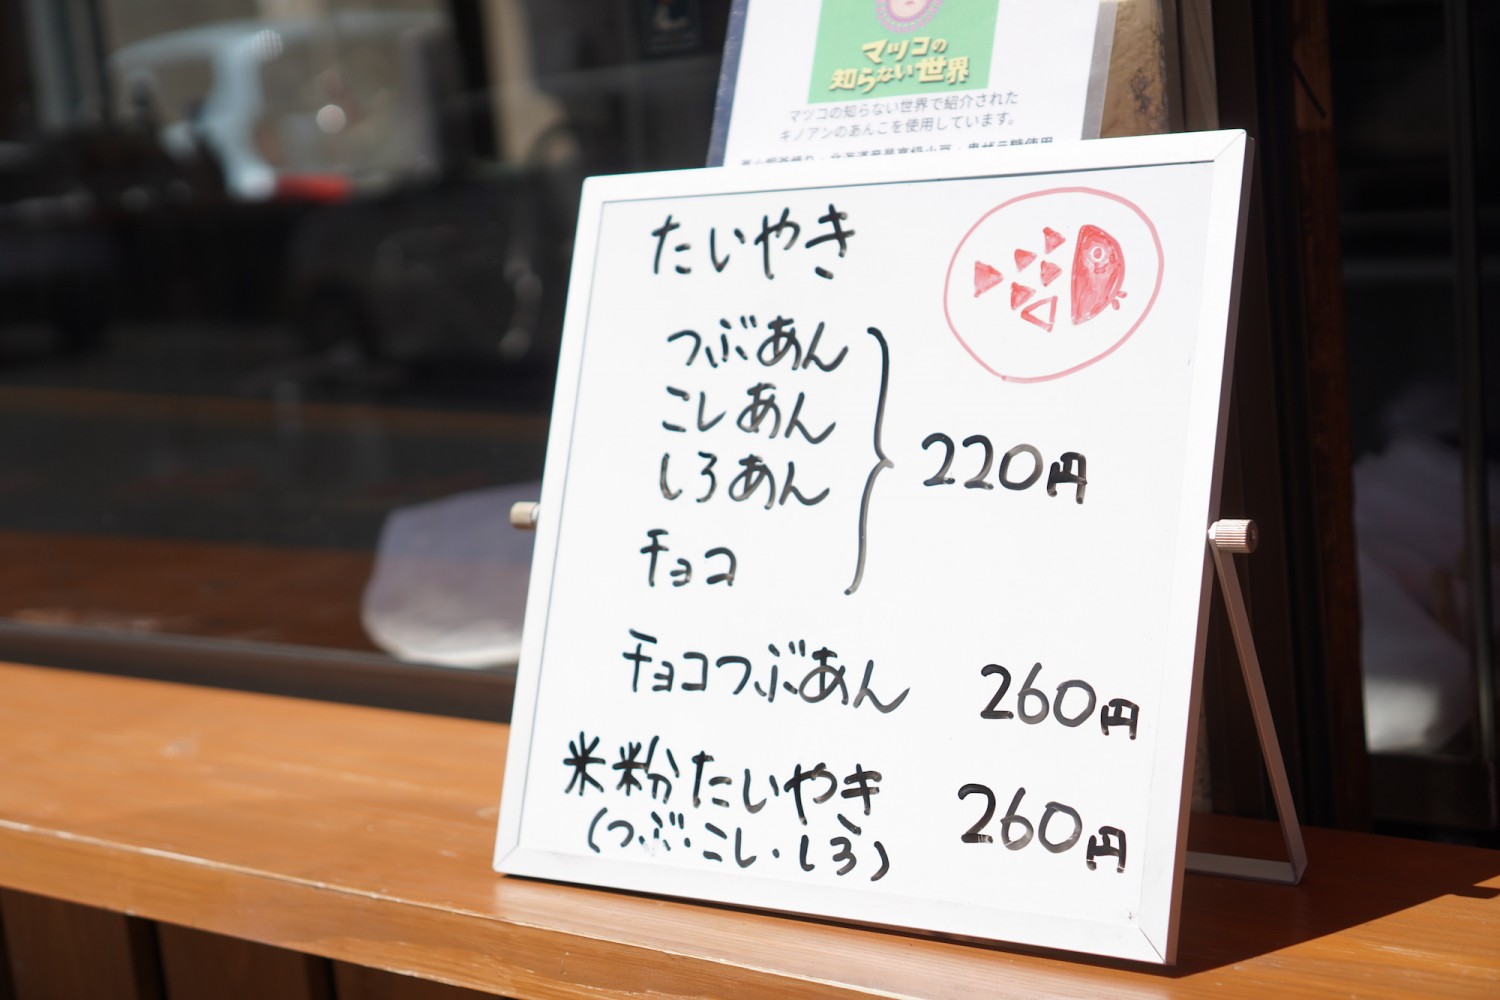 マツコの
知らない世界
マツコの知らない世界で紹介された
キノアンのあんこを使用しています。
たいやき
つぶあん
こしあん
しろあん
チョコ
220円
チョコつぶあん 260円
米粉たいやき 260円
(つぶ・こし・しろ)